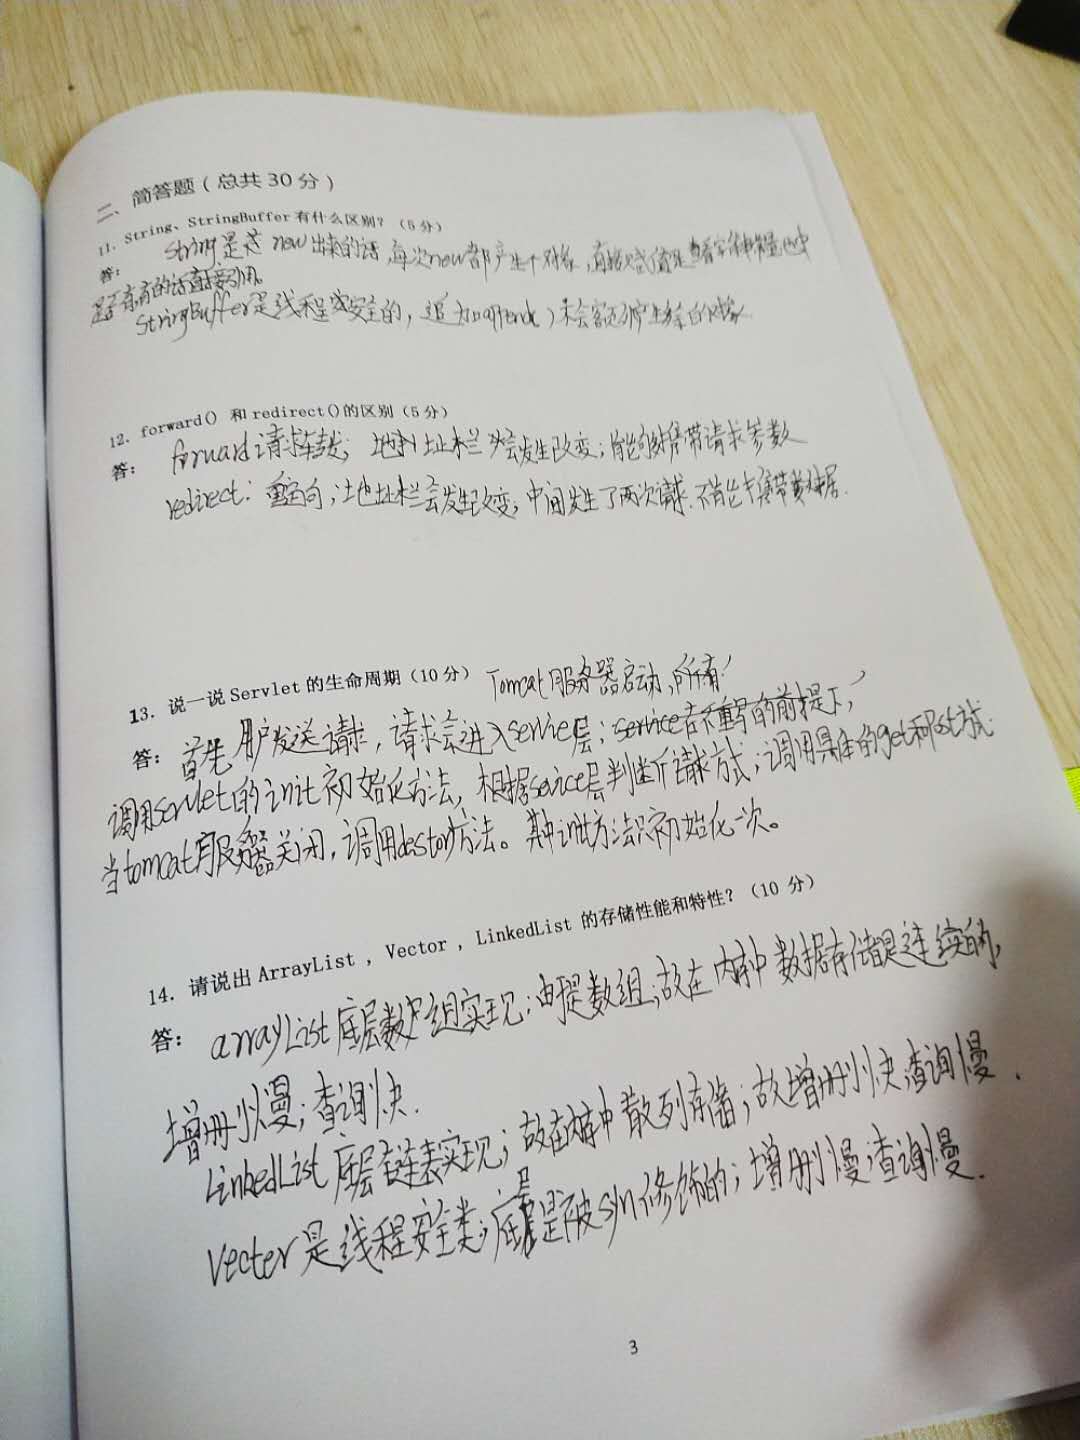 二、简答题（总共30分）
11. String、StringBuffer有什么区别？（5分）
答： String是 new出来的话,每次new都产生个对象,直接赋值是查看字符串常量池中
是否有,有的话直接引用。
StringBuffer是线程安全的, 追加append()不会额外产生多余的对象
12. forward() 和redirect()的区别（5分）
答： forward请求转发; 地址栏不会发生改变;能够携带请求参数
redirect: 重定向;地址栏会发生改变;中间发生了两次请求.不能携带数据.
13. 说一说Servlet的生命周期（10分） Tomcat服务器启动,所有
答： 首先用户发送请求,请求会进入service层;service在不重写的前提下,
调用servlet的init初始化方法, 根据service层判断请求方式;调用具体的get和post方式.
当tomcat服务器关闭,调用destory方法。其中init方法只初始化一次。
14. 请说出ArrayList，Vector，LinkedList的存储性能和特性？（10 分）
答： arrayList底层数组实现;由于是数组;故在内存中数据存储是连续的,
增删慢;查询快.
LinkedList底层链表实现;故在内存中散列存储;故增删快,查询慢.
Vecter是线程安全类;底层是被syn修饰的;增删慢;查询慢.
3